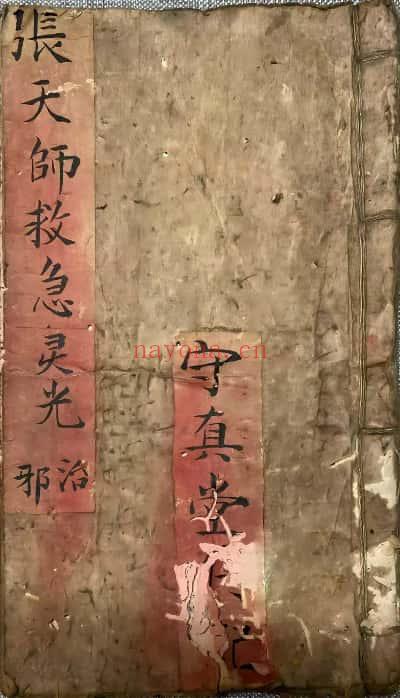 張天師救急灵光
治邪
守真堂
nayona.cn